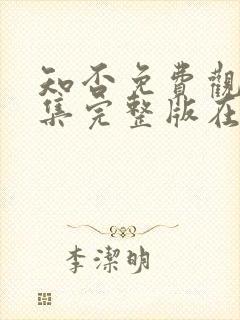 知否免費觀
集完整版在
李潔明